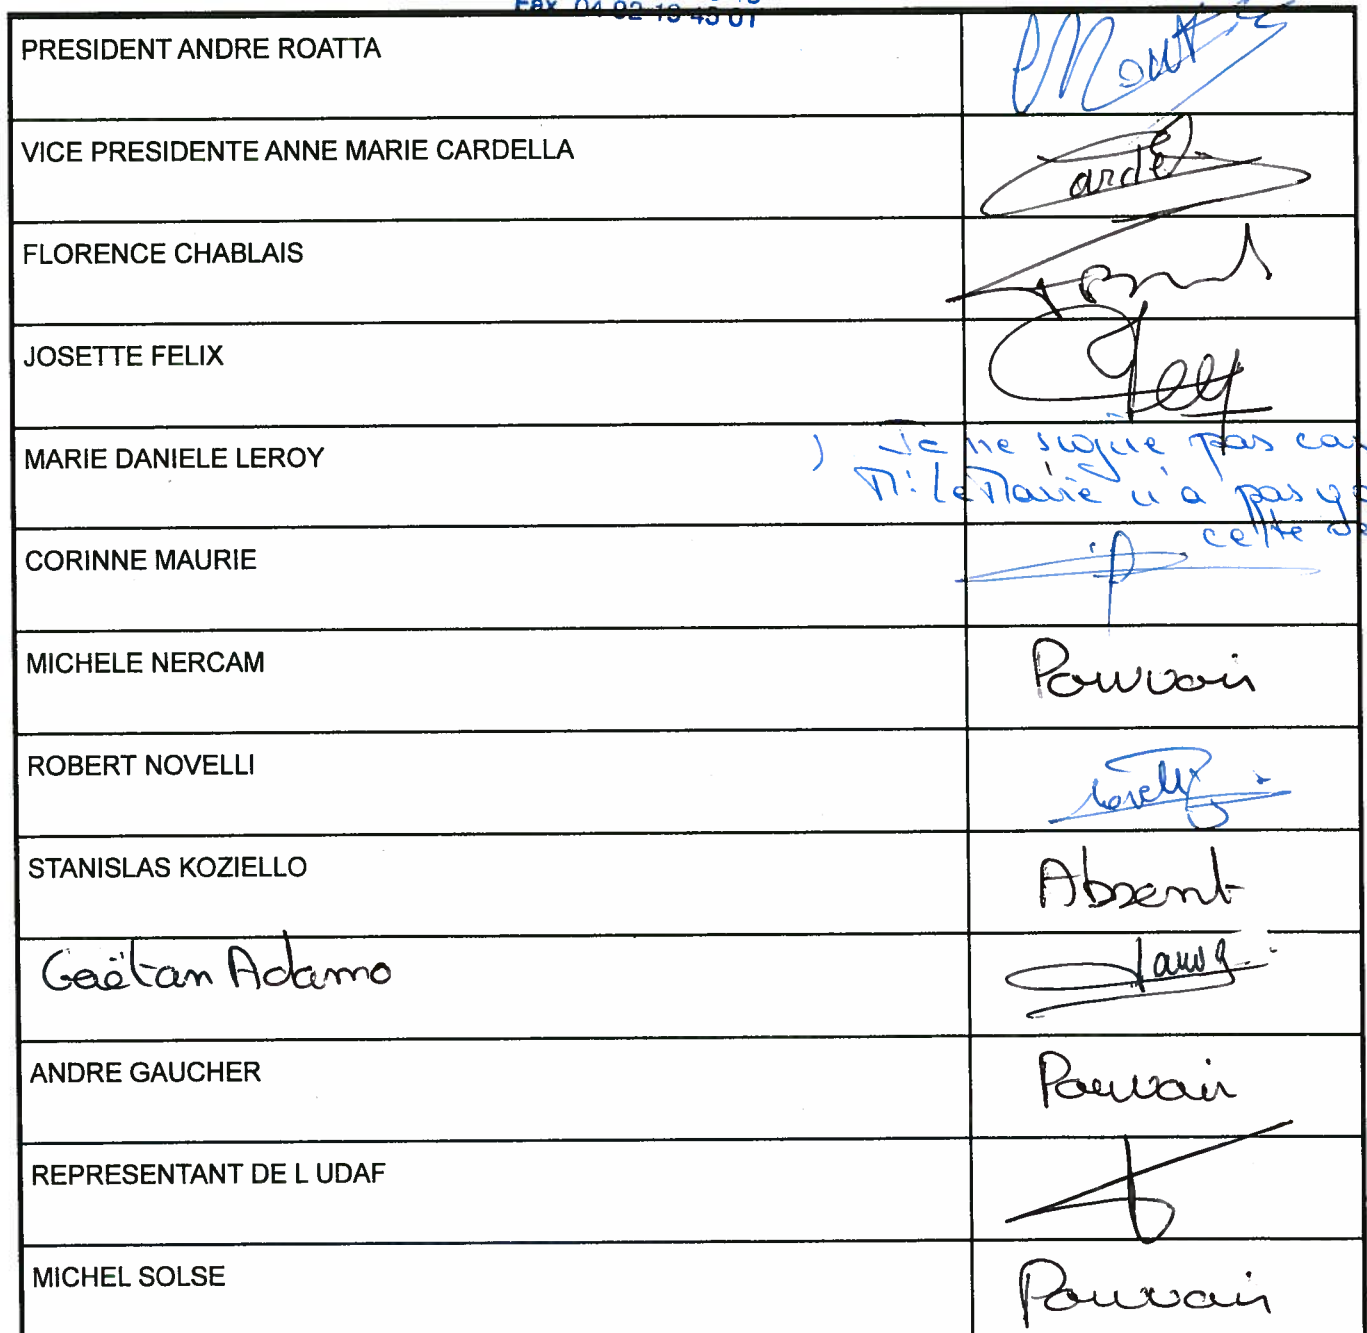 Fax 04 92 19 45 01
PRESIDENT ANDRE ROATTA
VICE PRESIDENTE ANNE MARIE CARDELLA
FLORENCE CHABLAIS
JOSETTE FELIX
MARIE DANIELE LEROY
Je ne signe pas car
M. Le Maire n'a pas
cette
CORINNE MAURIE
MICHELE NERCAM Pouvoir
ROBERT NOVELLI
STANISLAS KOZIELLO Absent
Gaëtan Adamo
ANDRE GAUCHER Pouvoir
REPRESENTANT DE L UDAF
MICHEL SOLSE Pouvoir